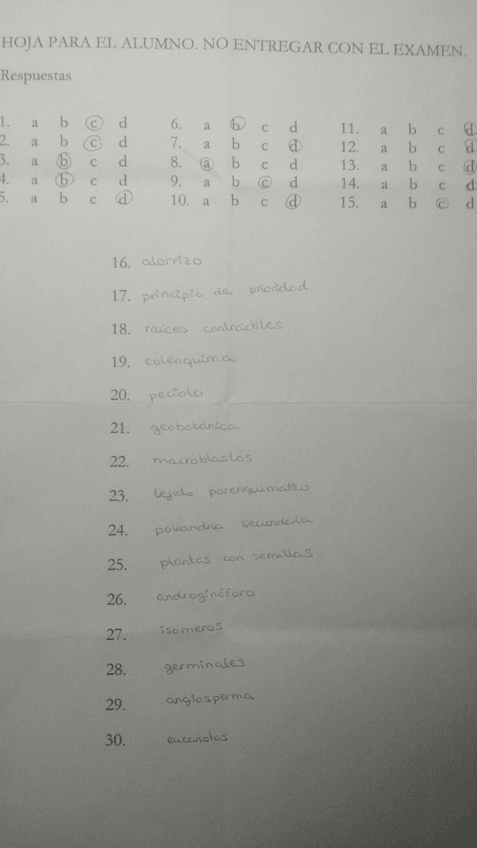 HOJA PARA EL ALUMNO. NO ENTREGAR CON EL EXAMEN.
Respuestas
1. a b c d 6. a b c d 11. a b c d
2. a b c d 7. a b c d 12. a b c d
3. a b c d 8. a b c d 13. a b c d
4. a b c d 9. a b c d 14. a b c d
5. a b c d 10. a b c d 15. a b c d
16. alorrizo
17. principio de prioridad
18. raíces contráctiles
19. colenquima
20. peciolo
21. geobotánica
22. macroblastos
23. tejido parenquimático
24. poliandria secundaria
25. plantas con semillas
26. androginóforo
27. isómeros
28. germinales
29. angiosperma
30. eucariotas